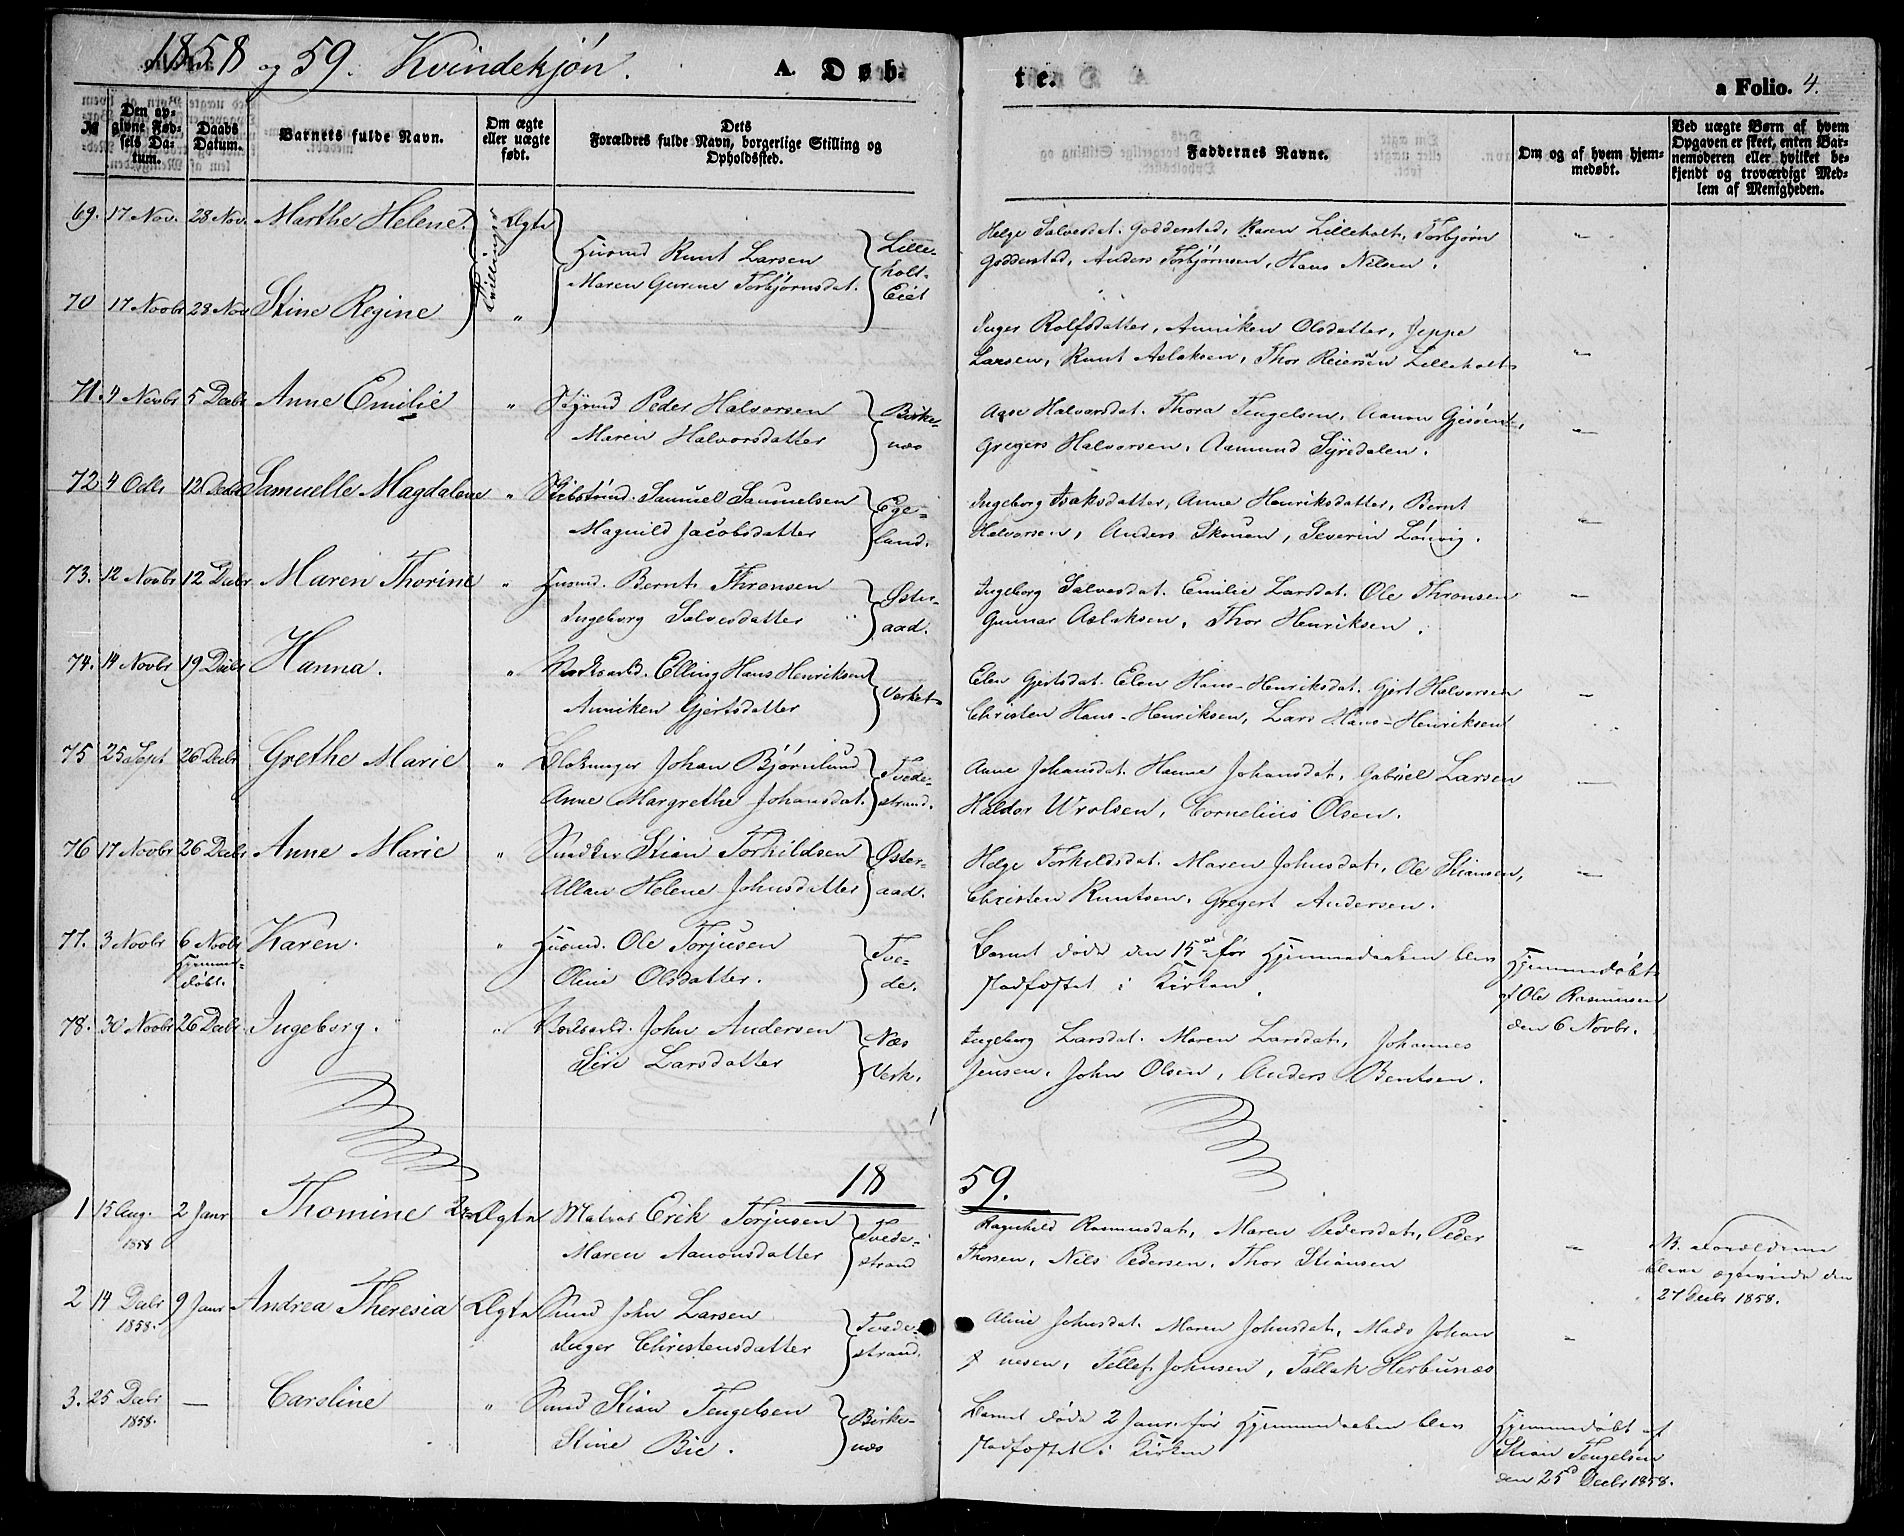 1858 og 59. Kvindekjøn. A. Døb-
te. a Folio. 4.
№ Den an-
givne Fød-
sels Da-
tum. Daabs
Datum. Barnets fulde Navn. Om ægte
eller uægte
født. Dets
Forældres fulde Navn, borgerlige Stilling og
Opholdssted.
Faddernes Navne. Om og af hvem hjem-
medøbt. Ved uægte Børn af hvem
Opgaven er skeet, enten Bar-
nemoderen eller hvilket be-
kjendt og troværdigt Med-
lem af Menigheden.
69. 17 Nov. 28 Nov. Marthe Helene. Ægte Husmd Knut Larsen Lille-
Tvillinger Maren Gurine Torbjørnsdat. holt-
Eiet
Helge Salvesdat. Godderstad, Karen Lilleholt, Torbjørn „
Godderstad, Anders Torbjørnsen, Hans Nilsen.
70 17 Novbr 28 Nov Stine Regine „
Inger Rolfsdatter, Anniken Olsdatter, Jeppe
Larsen, Knut Aslaksen, Thor Reiersen Lilleholt „
71. 4 Novbr 5 Decbr Anne Emilie „ Peder Halvorsen Birke-
Maren Halvorsdatter næs
Halvorsdat. Thora Tengelsen, Aanon
Gregers Halvorsen, Aamund Syredalen. „
72 4 12 Decbr Samuelle Magdalene „ Samuel Samuelsen Ege-
Magnild Jacobsdatter land.
Ingeborg Isaksdatter, Anne Henriksdatter, Bernt
Halvorsen, Anders Skouen, Severin Lønvig. „
73. 12 Novbr 12 Decbr Maren Thorine „ Husmd. Bernt Thronsen Øster-
Ingeborg Salvesdatter aad.
Ingeborg Salvesdat. Emilie Larsdat. Ole Thronsen „
Gunnar Aslaksen, Thor Henriksen.
74. 14 Novbr 19 Decbr Hanna. „ Elling Hans Henriksen Verket
Anniken Gjertsdatter
Elen Gjertsdat. Elen Hans-Henriksdat. Gjert Halvorsen „
Christen Hans-Henriksen, Lars Hans-Henriksen
75 25 Sept 26 Decbr Grethe Marie „ Johan Bjørnlund Tvede-
Anne Margrethe Johansdat. strand.
Anne Johansdat. Hanne Johansdat, Gabriel Larsen „
Haldor Wrolsen, Cornelius Olsen.
76 17 Novbr 26 Decbr Anne Marie „ Stian Torkildsen Øster-
Helene Johnsdatter aad.
Helge Torkildsdat. Maren Johnsdat, Ole Stiansen, „
Christen Knutsen, Gregert Andersen.
77. 3 Novbr 6 Novbr Karen. „ Husmd. Ole Torjusen Tve-
Hjemme-
døbt. Oline Olsdatter. de.
Barnet døde den 15de før Hjemmedaaben blev Hjemmedøbt
stadfæstet i Kirken. af Ole Rasmussen
den 6 Novbr.
78. 30 Novbr 26 Decbr Ingeborg. „ John Andersen Næs
Siri Larsdatter Verk.
Ingeborg Larsdat. Maren Larsdat, Johannes
Jensen. John Olsen, Anders Bentsen.
18 59.
1 15 Aug. 2 Janr Thomine Ægte Matros Erik Torjusen Tvede-
1858 Maren Aanonsdatter strand
Ragnhild Rasmusdat, Maren Pedersdat, Peder „ NB. Forældrene
Thorsen, Nils Pedersen, Thor Stiansen bleve ægteviede den
27 Decbr 1858.
2 14 Decbr 9 Janr Andrea Theresia Ægte John Larsen Tvede-
1858. Inger Christensdatter strand.
Aline Johnsdat. Maren Johnsdat, Mads Johan „
nesen, Tellef Johnsen, Tallak Herbunæs
3. 25 Decbr — Caroline „ Stian Tengelsen Birke-
1858. Stine Bie. næs
Barnet døde 2 Janr. før Hjemmedaaben blev Hjemmedøbt af
stadfæstet i Kirken Stian Tengelsen
den 25d Decbr 1858.